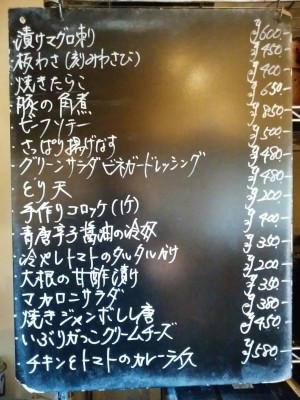 漬けマグロ刺 ¥600-
板わさ(刻みわさび) ¥450
焼きたらこ ¥400
豚の角煮 ¥650
ビーフソテー ¥850
さっぱり揚げなす ¥500
グリーンサラダ ビネガードレッシング ¥480
とり天 ¥480
手作りコロッケ(1ケ) ¥200
青唐辛子醤油の冷奴 ¥400
冷やしトマトのタルタルがけ ¥350
大根の甘酢漬け ¥200
マカロニサラダ ¥350
焼きジャンボしし唐 ¥380
いぶりがっこクリームチーズ ¥450
チキンとトマトのカレーライス ¥580